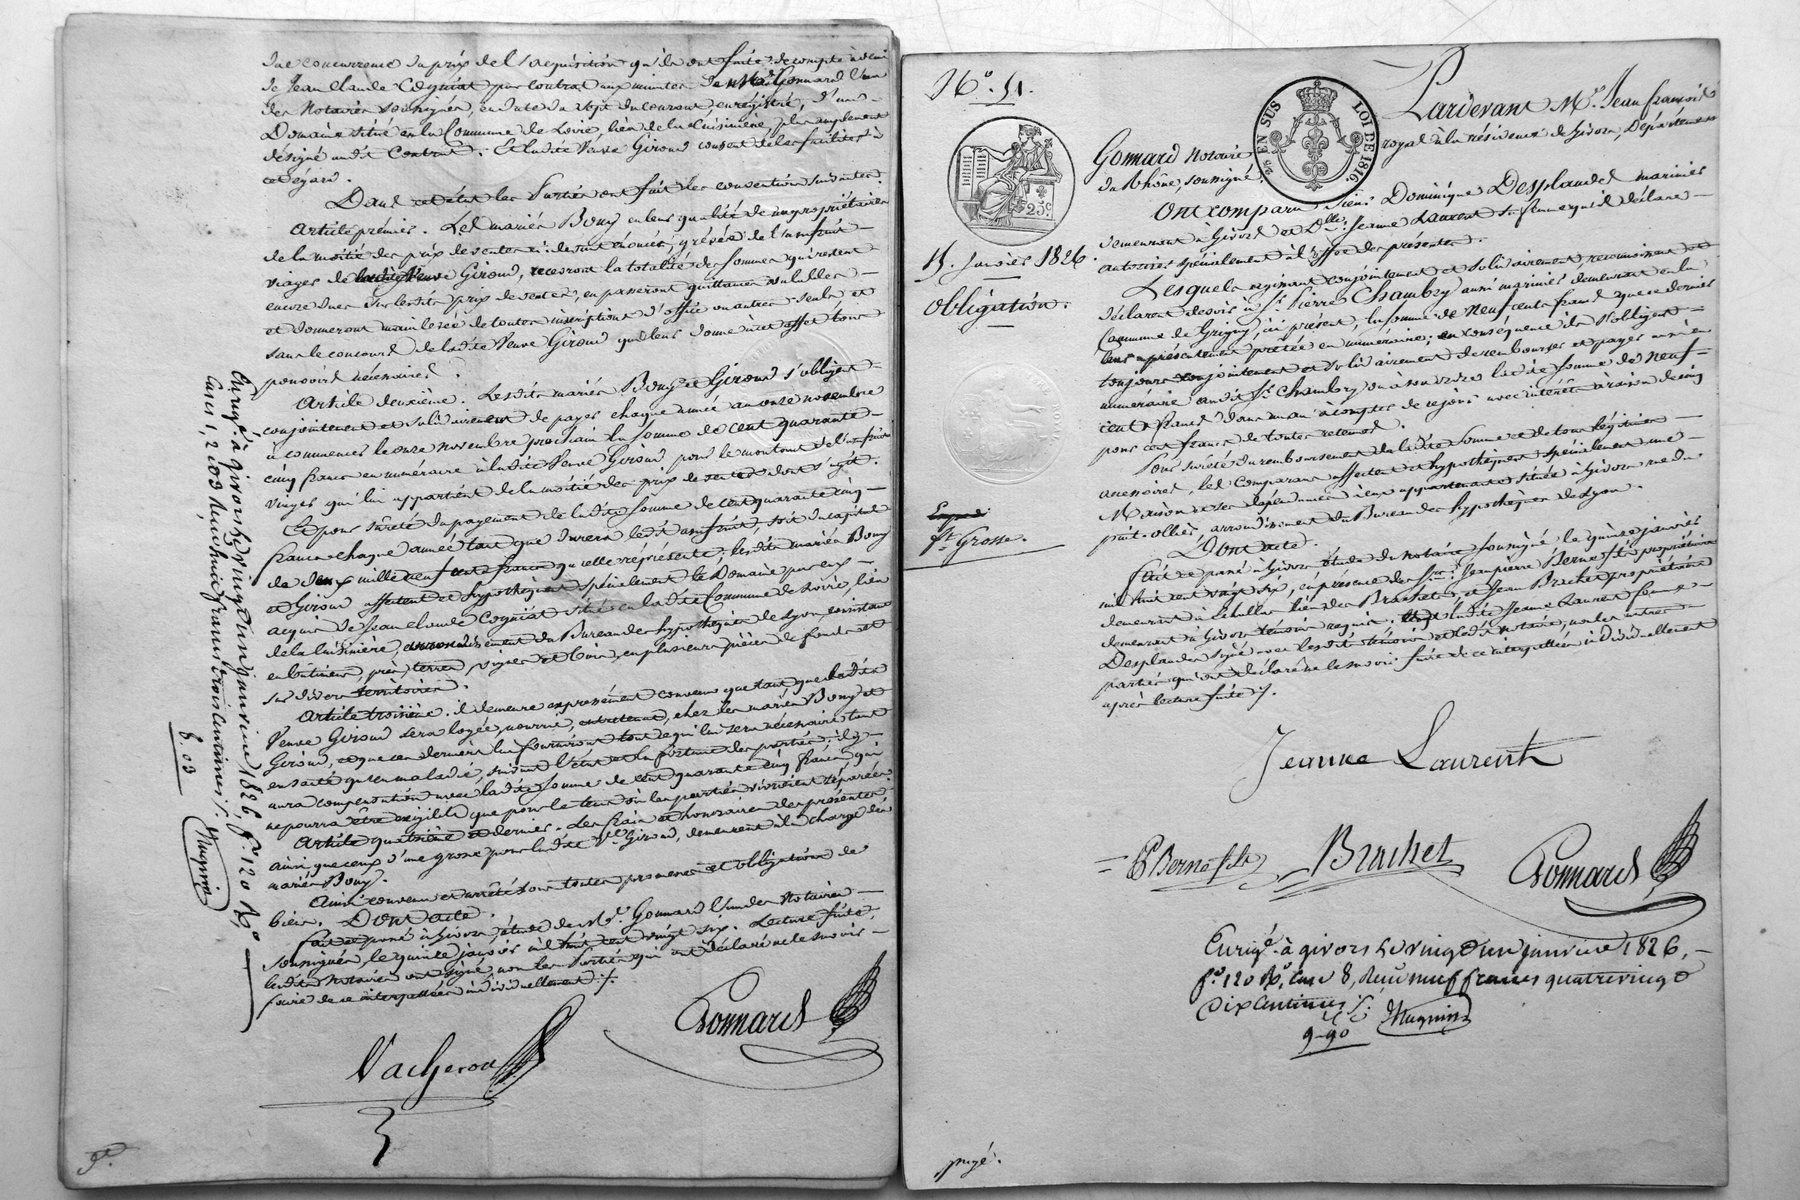 due concurrence du prix de l'acquisition qu'ils ont faite de compte à demi
de Jean Claude Cogniat par contrat aux minutes de Me Gonnard l'un
des Notaires soussignés, en date du sept du courant, enregistré, d'un
Domaine situé en la Commune de Loire, lieu de la Cuisinière, plus amplement
désigné audit Contrat. Et ladite Veuve Giroud consent de les faciliter à
cet égard.
Dans cet état les Parties ont fait les conventions suivantes
Article premier. Les mariés Bony en leur qualité de propriétaires
de la moitié des prix de ventes ci-devant énoncés, grévée de l'usufruit
viager de ladite Veuve Giroud, recevront la totalité des sommes qui restent
encore dues sur lesdits prix de ventes, en passeront quittances valables
et donneront mainlevée de toutes inscriptions d'office ou autres seuls et
sans le concours de ladite Veuve Giroud qui leur donne à cet effet tous
pouvoirs nécessaires.
Article deuxième. Lesdits mariés Bony et Giroud s'obligent
conjointement et solidairement de payer chaque année au onze novembre
à commencer le onze novembre prochain la somme de cent quarante
cinq francs en numéraire à ladite Veuve Giroud pour le montant de l'usufruit
viager qui lui appartient de la moitié des prix de ventes dont s'agit.
Et pour sûreté du payement de ladite somme de cent quarante cinq
francs chaque année tant que durera ledit usufruit, soit du capital
de deux mille neuf cents francs qu'elle représente, lesdits mariés Bony
et Giroud affectent et hypothèquent spécialement le Domaine par eux
acquis de Jean Claude Cogniat situé en ladite Commune de Loire, lieu
de la Cuisinière, arrondissement du Bureau des hypothèques de Lyon, consistant
en bâtiment, prés, terres, vignes et bois, en plusieurs pièces de fonds et
sur divers territoires.
Article troisième. il demeure expressément convenu que tant que ladite
Veuve Giroud sera logée, nourrie, entretenue, chez les mariés Bony et
Giroud, et que ces derniers lui fourniront tout ce qui lui sera nécessaire tant
en santé qu'en maladie, suivant l'état et la fortune des parties, il y
aura compensation avec ladite somme de cent quarante cinq francs qui
ne pourra être exigible que pour le tems où les parties vivroient séparées.
Article quatrième et dernier. Les frais et honoraires des présentes
ainsi que ceux d'une grosse pour ladite Ve Giroud, demeurent à la charge des
mariés Bony.
Ainsi convenu et arrêté sous toutes promesses et obligations de
biens. Dont acte.
Fait et passé à Givors, étude de Me Gonnard l'un des Notaires
soussignés, le quinze janvier mil huit cent vingt six. Lecture faite,
lesdits Notaires ont signé, non les Parties qui ont déclaré ne le savoir
faire de ce interpellées individuellement ./.
Vacheron
Gonnard
Enregé à givors le vingt un janvier 1826 fo 120 Ro
cases 1, 2 et 3 Reçu huit francs trois centimes ./.
8.03
Magnin
No 51.
Pardevant Me Jean françois
Gonnard Notaire royal à la résidence de Givors, Département
du Rhône soussigné,
25c EN SUS
LOI DE 1816.
25c
15. Janvier 1826.
Obligation.
Ont comparu Sieur Dominique Desplaudes marinier
demeurant à Givors et Dlle Jeanne Laurent sa femme qu'il déclare
autoriser spécialement à l'effet des présentes.
Lesquels agissant conjointement et solidairement, reconnoissent et
déclarent devoir à Sr Pierre Chambry aussi marinier demeurant en la
Commune de Grigny, ici présent, la somme de Neuf cents francs que ce dernier
leur a présentement prêtée en numéraire; en conséquence ils s'obligent
toujours conjointement et solidairement de rembourser et payer aussi en
numéraire audit Sr Chambry ou à son ordre ladite somme de neuf
cents francs dans un an à compter de ce jour avec intérêts à raison de cinq
pour cent francs de toutes retenues.
Pour sûreté du remboursement de ladite somme et de tous légitimes
accessoires, les comparans affectent et hypothèquent spécialement une
Maison et ses dépendances à eux appartenante située à Givors rue du
puit-ollier, arrondissement du Bureau des hypothèques de Lyon.
Dont acte.
Fait et passé à Givors étude du Notaire soussigné le quinze janvier
mil huit cent vingt six, en présence des Srs Jean pierre Berne fils propriétaire
demeurant à Echallas lieu des Brachets, et Jean Brachet propriétaire
demeurant à Givors témoins requis. Et ladite Jeanne Laurent femme
Desplaudes signé avec lesdits témoins et ledit Notaire, non les autres
parties qui ont déclaré ne le savoir faire de ce interpellées individuellement
après lecture faite ./.
fte Grosse.
Jeanne Laurent
Berne fils
Brachet
Gonnard
Enregé à givors le vingt un janvier 1826,
fo 120 Ro, case 8, Reçu neuf francs quatrevingt
dix centimes ./.
9-90
Magnin
payé.